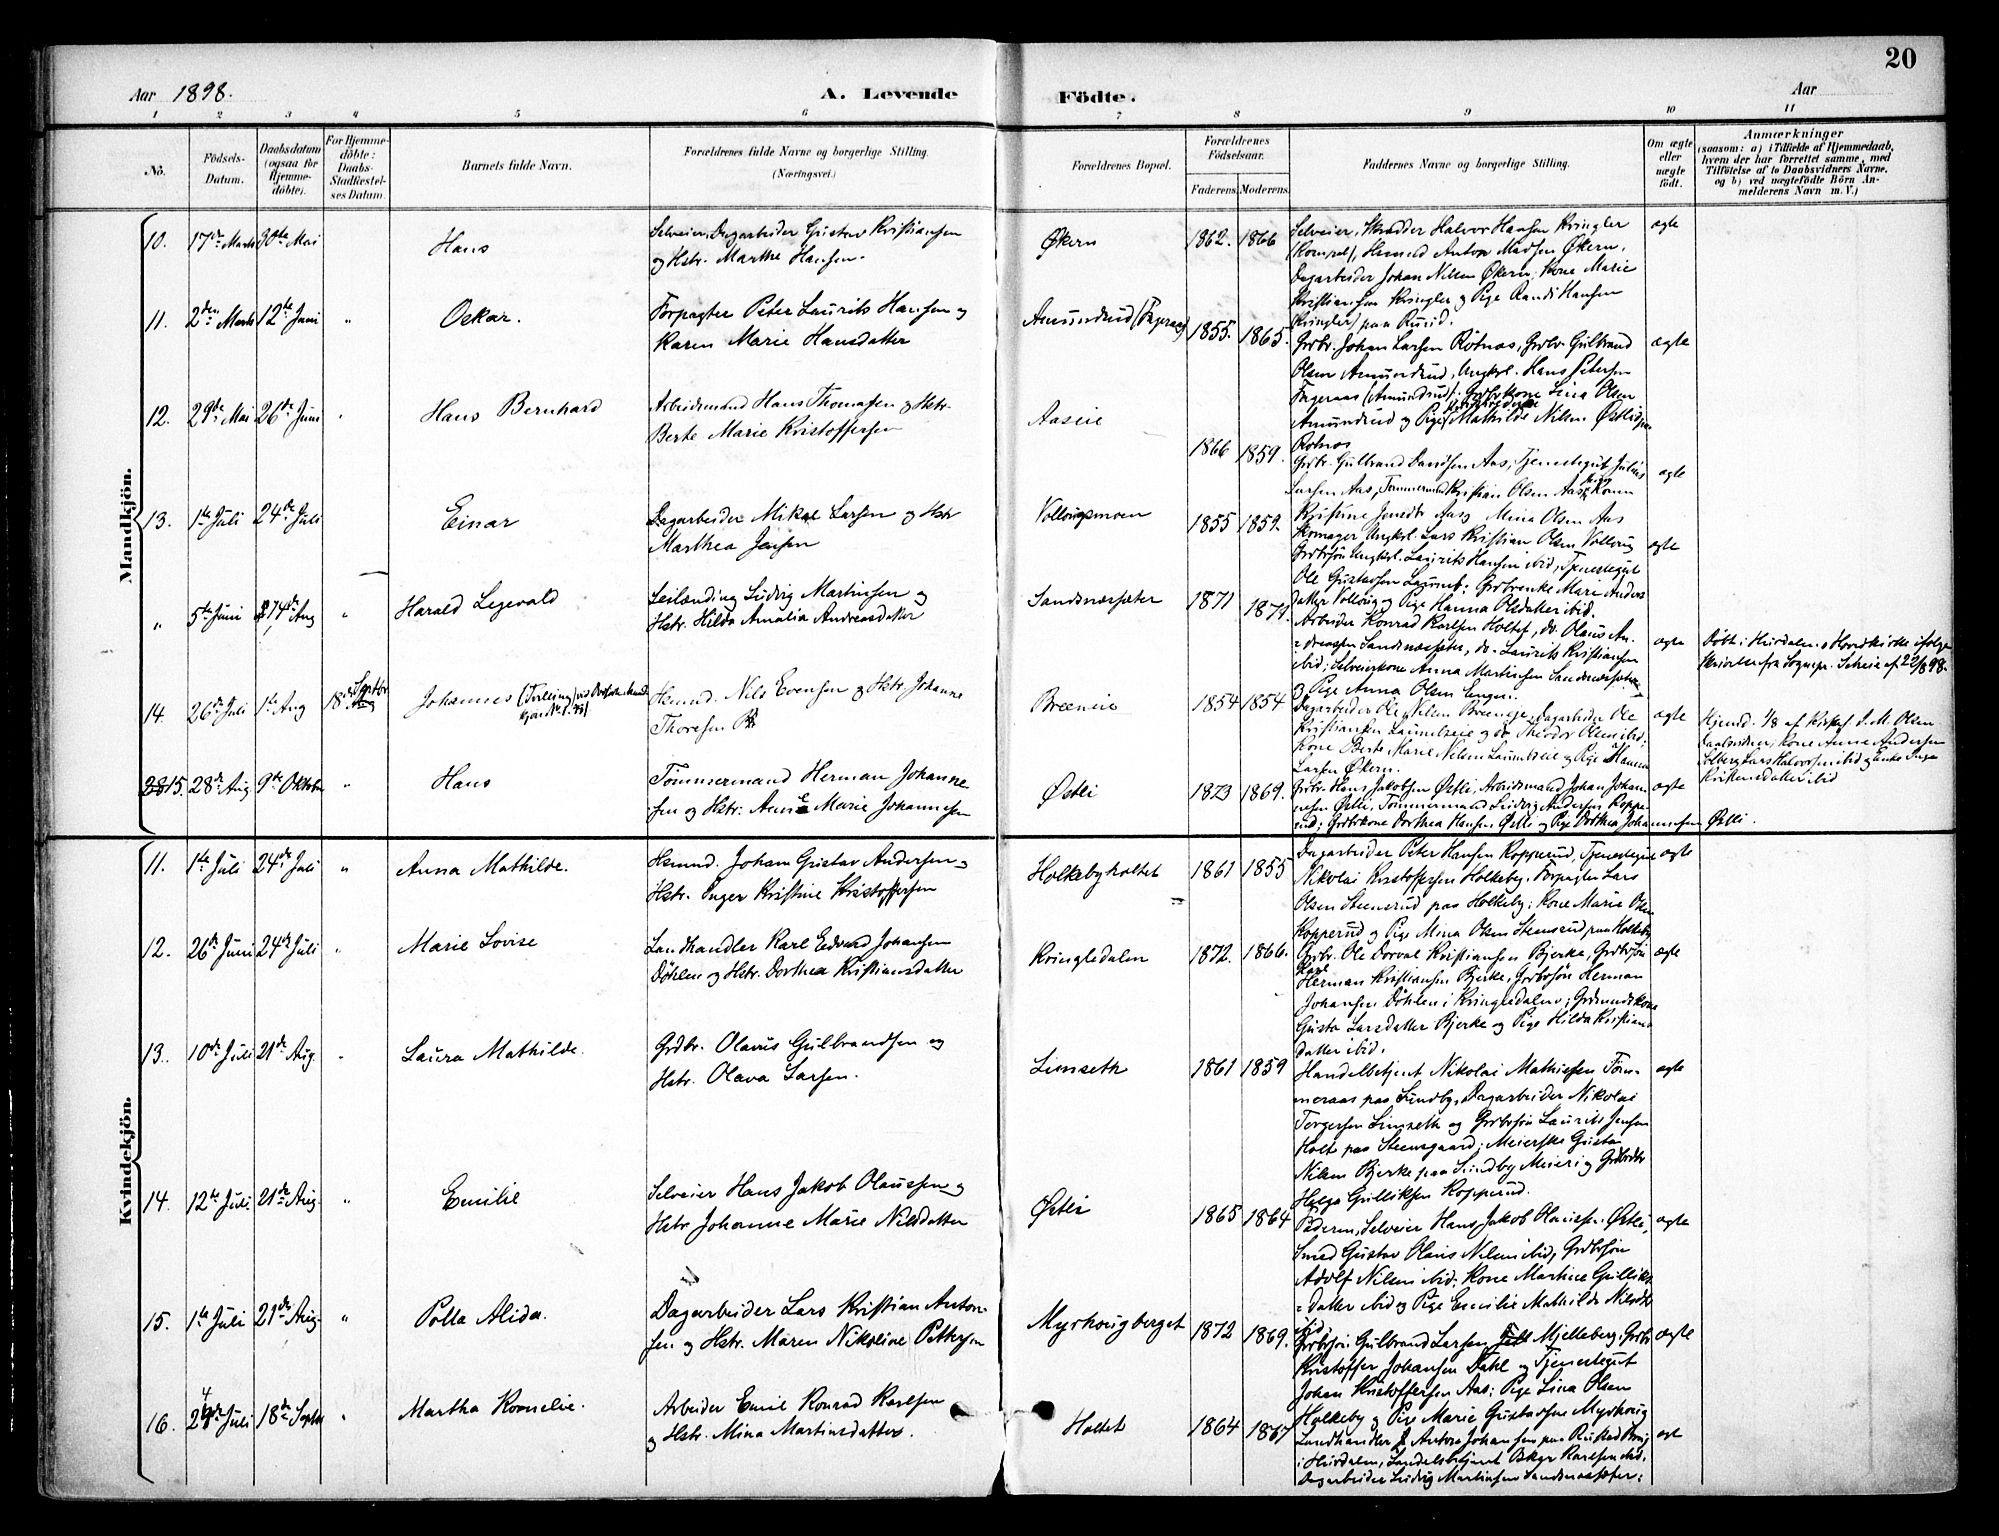 20
Aar 1898.
A. Levende
Födte.
Aar
1 2 3 4 5 6 7 8 9 10 11
No.
Födsels-
Datum.
Daabsdatum
(ogsaa for
Hjemme-
döbte).
For Hjemme-
döbte:
Daabs-
Stadfestel-
ses Datum.
Barnets fulde Navn.
Forældrenes fulde Navne og borgerlige Stilling.
(Næringsvei.)
Forældrenes Bopæl.
Forældrenes
Födselsaar.
Faderens. Moderens.
Faddernes Navne og borgerlige Stilling.
Om ægte
eller
uægte
födt.
Anmærkninger
(saasom: a) i Tilfælde af Hjemmedaab,
hvem der har forrettet samme, med
Tilföielse af to Daabsvidners Navne,
og b) ved uægtefödte Börn An-
melderens Navn m. V.)
Mandkjön.
10. 17de Marts 30te Mai
Hans
Selveier, Dagarbeider Gustav Kristiansen
og Hstr. Marthe Hansen.
Økern
1862. 1866
Selveier, Skrædder Halvor Hansen Kringler
Hsmnd Anton Madsen Økern,
Dagarbeider Johan Nilsen Økern, Kone Marie
Kristiansen Kringler og Pige Randi Hansen
Kringler paa Rusid.
ægte
11. 2den Marts 12te Juni "
Oskar.
Forpagter Peter Laurits Hansen og
Karen Marie Hansdatter
Amundrud (Fageraas)
1855. 1865.
Grdbr. Johan Larsen Rötnæs, Grdbr. Gulbrand
Olsen Amundrud, Ungkrl. Hans Petersen
Fageraas (Amundrud). Grdbrkone Lina Olsen
Amundrud og Pige Mathilde Nilsen Østli paa
Rotnæs
ægte
12. 29de Mai 26de Juni "
Hans Bernhard
Arbeidsmand Hans Thomasen og Hstr.
Berte Marie Kristoffersen
Aaseie
1866 1859.
Grdbr. Gulbrand Davidsen Aas, Tjenestegut Julius
Larsen Aas, Tømmermand Kristian Olsen Aas, Konen
Kristine Jensdtr Aas og Mina Olsen Aas
ægte
13. 1ste Juli 24de Juli
Einar
Dagarbeider Mikal Larsen og Hstr
Marthea Jensen
Vollaugmoen
1855 1859.
Skomager Ungkrl. Lars Kristian Olsen Vollaug
Grdbrsön Ungkrl. Laurits Hansen ibid, Tjenestegut
Ole Gustavsen Laumb; Grdbrenke Mari Anders
datter Vollaug og Pige Hanna Olsdatter ibid.
ægte
" 5te Juni 14de Aug "
Harald Legevald
Leilænding Ludvig Martinsen og
Hstr. Hilda Amalia Andreasdatter
Sandsnæssæter
1871 1871.
Arbeider Konrad Karlsen Holtet, do. Olaus An-
dreassen Sandsnæssæter, do. Laurits Kristiansen
ibid; Selveierkone Anna Martinsen Sandsnæssæter
og Pige Anna Olsen Engen.
ægte
Døbt i Hurdalens Hovedkirke ifølge
Skrivelse fra Sognepr. Scheie af 22/8 98.
14. 26de Juli 1ste Aug 18de Septbr
Johannes
Hsmnd. Nils Evensen og Hstr. Johanne
Thoresen
Breeneie
1854 1854
Dagarbeider Ole Nilsen Breeneie, Dagarbeider Ole
Kristiansen Laumbseie og do Theodor Olsen ibid;
Kone Berte Marie Nilsen Laumbseie og Pige Hanna
Larsen Økern.
ægte
Hjemd. 1/8 af Kirkes. S. M. Olsen
Daabsvidner; Kone Anne Andersen
Solberg Lars Halvorsen ibid og Enke Inge
Kristensdatter ibid
15. 28de Aug 9de Oktober "
Hans
Tömmermand Herman Johanne-
sen og Hstr. Anne Marie Johannesen
Østli
1873 1869.
Grdbr. Hans Jakobsen Østli, Arbeidsmand Johan Johan-
nesen Østli, Tömmermand Ludvig Andersen Koppe-
rud; Grdbrkone Dorthea Hansen Østli og Pige Dorthea Johannesen Østli.
ægte
Kvindekjön.
11. 1ste Juli 24de Juli "
Anna Mathilde.
Hsmnd. Johan Gustav Andersen og
Hstr. Inger Kristine Kristoffersen
Holkebyholtet
1861 1855
Dagarbeider Peter Hansen Kopperud, Tjenestegut
Nikolai Kristoffersen Holkeby, Forpagter Lars
Olsen Steensrud paa Holkeby; Kone Marie Olsen
Kopperud og Pige Mina Olsen Steensrud paa Holkeby
ægte
12. 26de Juni 24de Juli "
Marie Lovise
Landhandler Karl Edvard Johansen
Döhlen og Hstr. Dorthea Kristiansdatter
Kringledalen
1872. 1866.
Grdbr. Ole Dorval Kristiansen Bjerke, Grdbrsön
Karl
Herman Kristiansen Bjerke, Grdbrsön Herman
Johansen Döhlen i Kringledalen; Grdmandskone
Gusta Larsdatter Bjerke og Pige Hilda Kristians
datter ibid.
ægte
13. 10de Juli 21de Aug. "
Laura Mathilde.
Grdbr. Olaves Gulbrandsen og
Hstr. Olava Larsen.
Limseth
1861 1859
Handelsbetjent Nikolai Mathisen Töm-
meraas paa Sundby, Dagarbeider Nikolai
Torgersen Limseth og Grdbrsön Laurits Jensen
Holt paa Steensgaard; Meierske Gusta
Nilsen Bjerke paa Sundby Meieri og Grdbrdtr
Helga Gulliksen Kopperud.
ægte
14. 12te Juli 21de Aug. "
Emilie
Selveier Hans Jakob Olaussen og
Hstr Johanne Marie Nilsdatter
Østli
1865 1864
Faderen, Selveier Hans Jakob Olaussen Østli,
Smed Gustav Olaus Nilsen ibid, Grdbrsön
Adolf Nilsen ibid; Kone Martine Gulliks
datter ibid og Pige Emilie Mathilde Nilsdtr
ibid.
ægte
15. 1ste Juli 21de Aug. "
Polla Alida.
Dagarbeider Lars Kristian Anton-
sen og Hstr. Maren Nikoline Pettersen
Myrhougberget
1872 1869.
Grdbrsön Gulbrand Larsen Mjelleberg, Grdbr
Kristoffer Johansen Dahl og Tjenestegut
Johan Kristoffersen Aas; Pige Lina Olsen
Holkeby og Pige Marie Gustavsen Myrhoug
ægte
16. 24de Juli 18de Septbr "
Martha Kornelie.
Arbeider Emil Konrad Karlsen
og Hstr. Mina Martinsdatter.
Holtet
1864 1867
Landhandler Anton Johansen paa Rustad
i Hurdalen, Handelsbetjent Karlsen ibid,
Dagarbeider Ludvig Martinsen Sandsnæssæter;
ægt